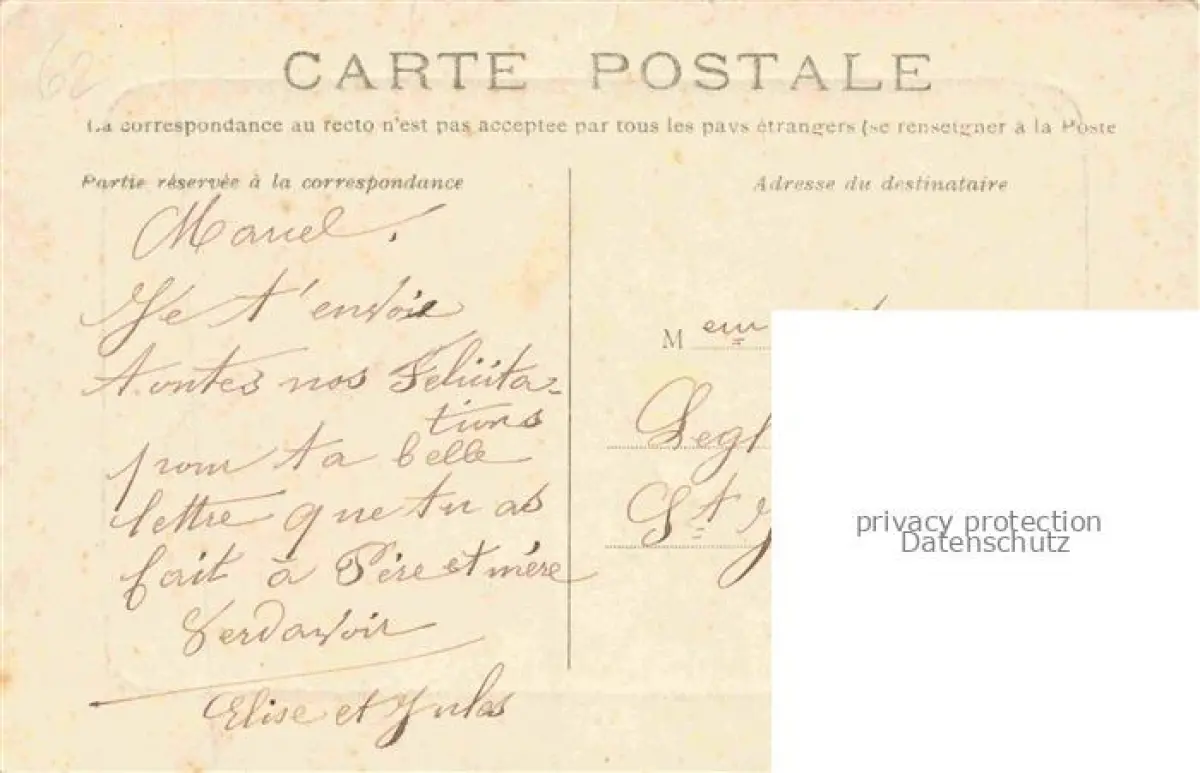 62
CARTE POSTALE
La correspondance au recto n'est pas acceptée par tous les pays étrangers (se renseigner à la Poste
Partie réservée à la correspondance
Adresse du destinataire
Marcel,
Je t'envoie
toutes nos Félicita=
tions
pour ta belle
lettre que tu as
fait à Père et mère
Elise et Jules
M eur
Legl
St J
privacy protection
Datenschutz